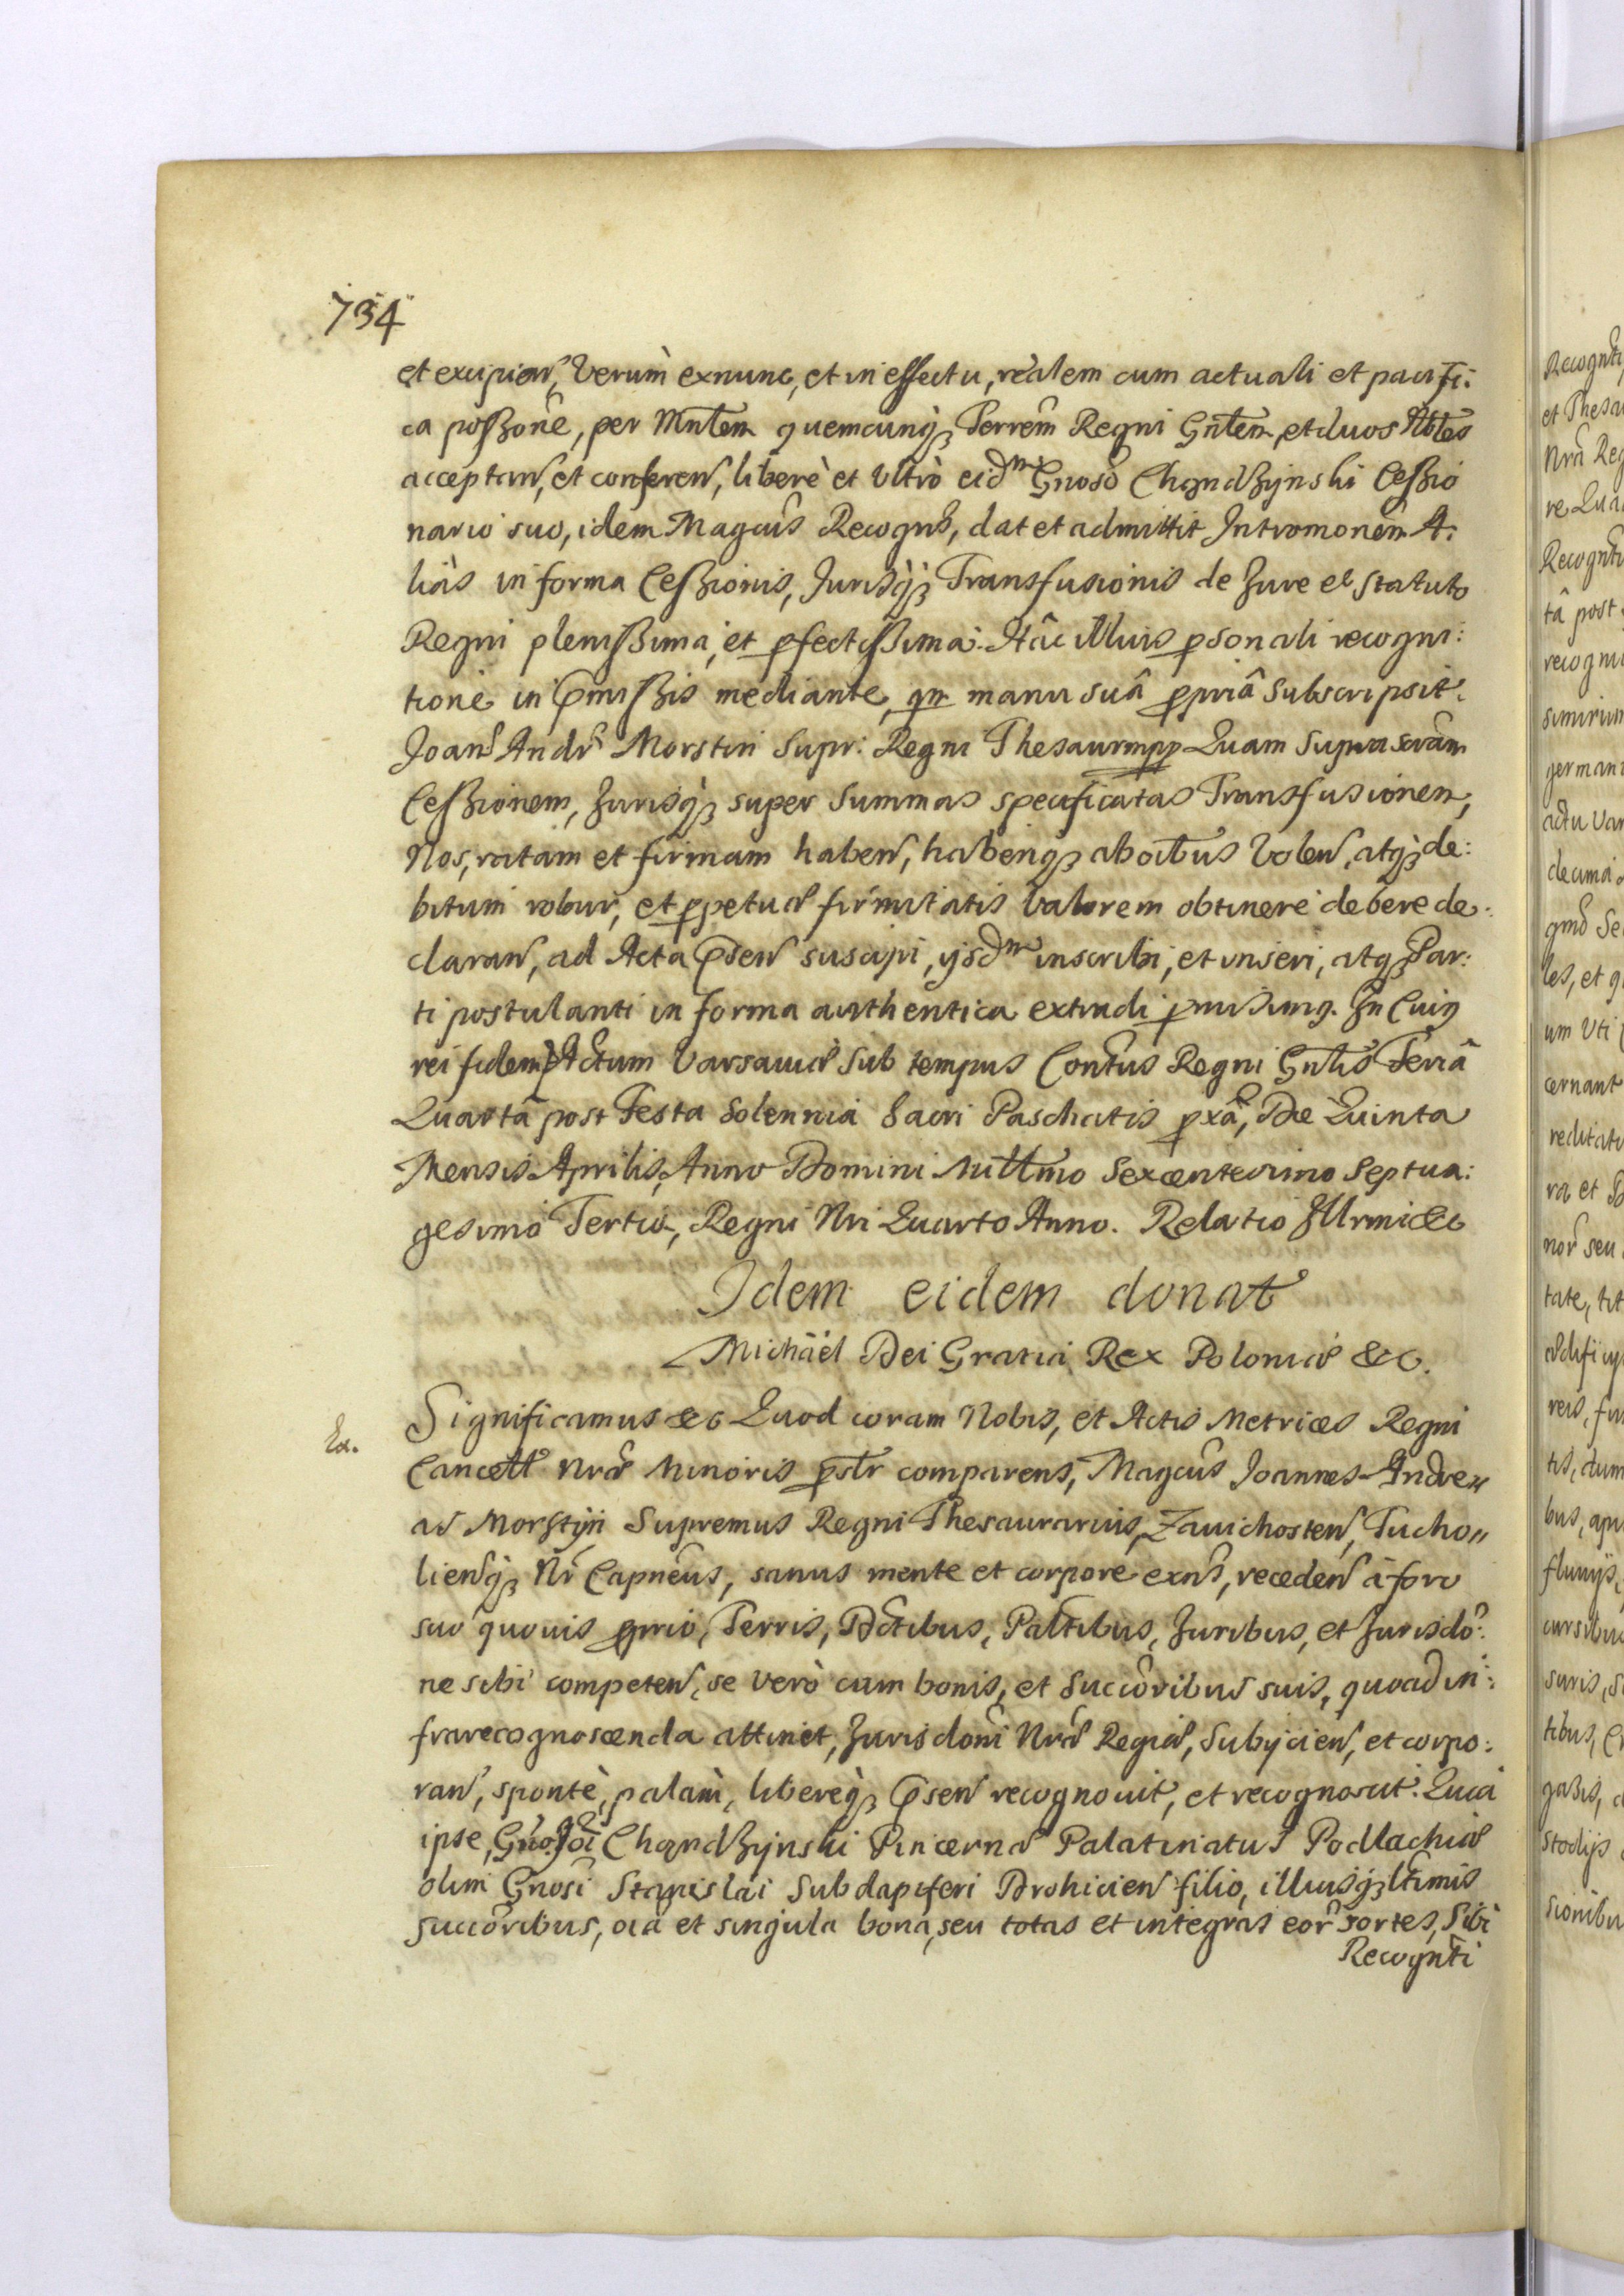 734
et excipien, Verum exnunc, et in effectu, realem cum actuali et pacifi:
ca poßone, per Mntem quemcunq₃ Terrem Regni Gntem, et duos Nbles
acceptan, et conferen, liberè et Vltrò eidm Gnoso Chądzynski Ceßio
nario suo, idem Magcus Recogns, dat et admittit Intromonem. A:
liàs in forma Ceßionis, Jurisq₃ Transfusionis de Jure et Statuto
Regni plenißima, et pfectißima. Hac illius psonali recogni:
tione in pmißis mediante, qm manu suâ ppriâ subscripsit.
Joans Andrs Morstin Supr: Regni Thesaur mpp Quam suprascram
Ceßionem, Jurisq₃ super Summas specificatas Transfusionem,
Nos, ratam et firmam haben, habenq₃ ab oibus Volen, atq₃ de:
bitum robur, et ppetuæ firmitatis Valorem obtinere debere de:
claran, ad Acta psen suscipi, ijsdm inscribi, et inseri, atq₃ Par:
ti postulanti in forma authentica extradi pmisimq. In Cuiq
rei fidem Actum Varsaviæ sub tempus Contus Regni Gnlis Feriâ
Quartâ post Festa Solennia Sacri Paschatis pxâ, Die Quinta
Mensis Aprilis, Anno Domini Millmo Sexcentesimo Septua:
gesimo Tertio, Regni Nri Quarto Anno. Relatio Illrmi &c
Idem eidem donat
Michäel Dei Gratia Rex Poloniæ &c.
Ex.
Significamus &c Quod coram Nobis, et Actis Metrices Regni
Cancell Nræ Minoris pslr comparens, Magcus Joannes Andre„
as Morstyn Supremus Regni Thesaurarius, Zavichosten, Tucho„
lienq₃ Nr Capneus, sanus mente et corpore exns, receden à foro
suo quovis pprio, Terris, Dctibus, Paltibus, Juribus, et Jurisdo:
ne sibi competen, se verò cum bonis, et Succoribus suis, quoad in:
frarecognoscenda attinet, Jurisdoni Nræ Regiæ, Subijcien, et corpo:
ran, sponte, palam, libereq₃ psen recognovit, et recognoscit. Quia
ipse, Gnoso Chądzynski Pincernæ Palatinatus Podlachiæ
olim Gnosi Stanislai Subdapiferi Drohicien filio, illiusq₃ ltimis
succoribus, oia et singula bona, seu totas et integras eor sortes, Sibi
Recognti